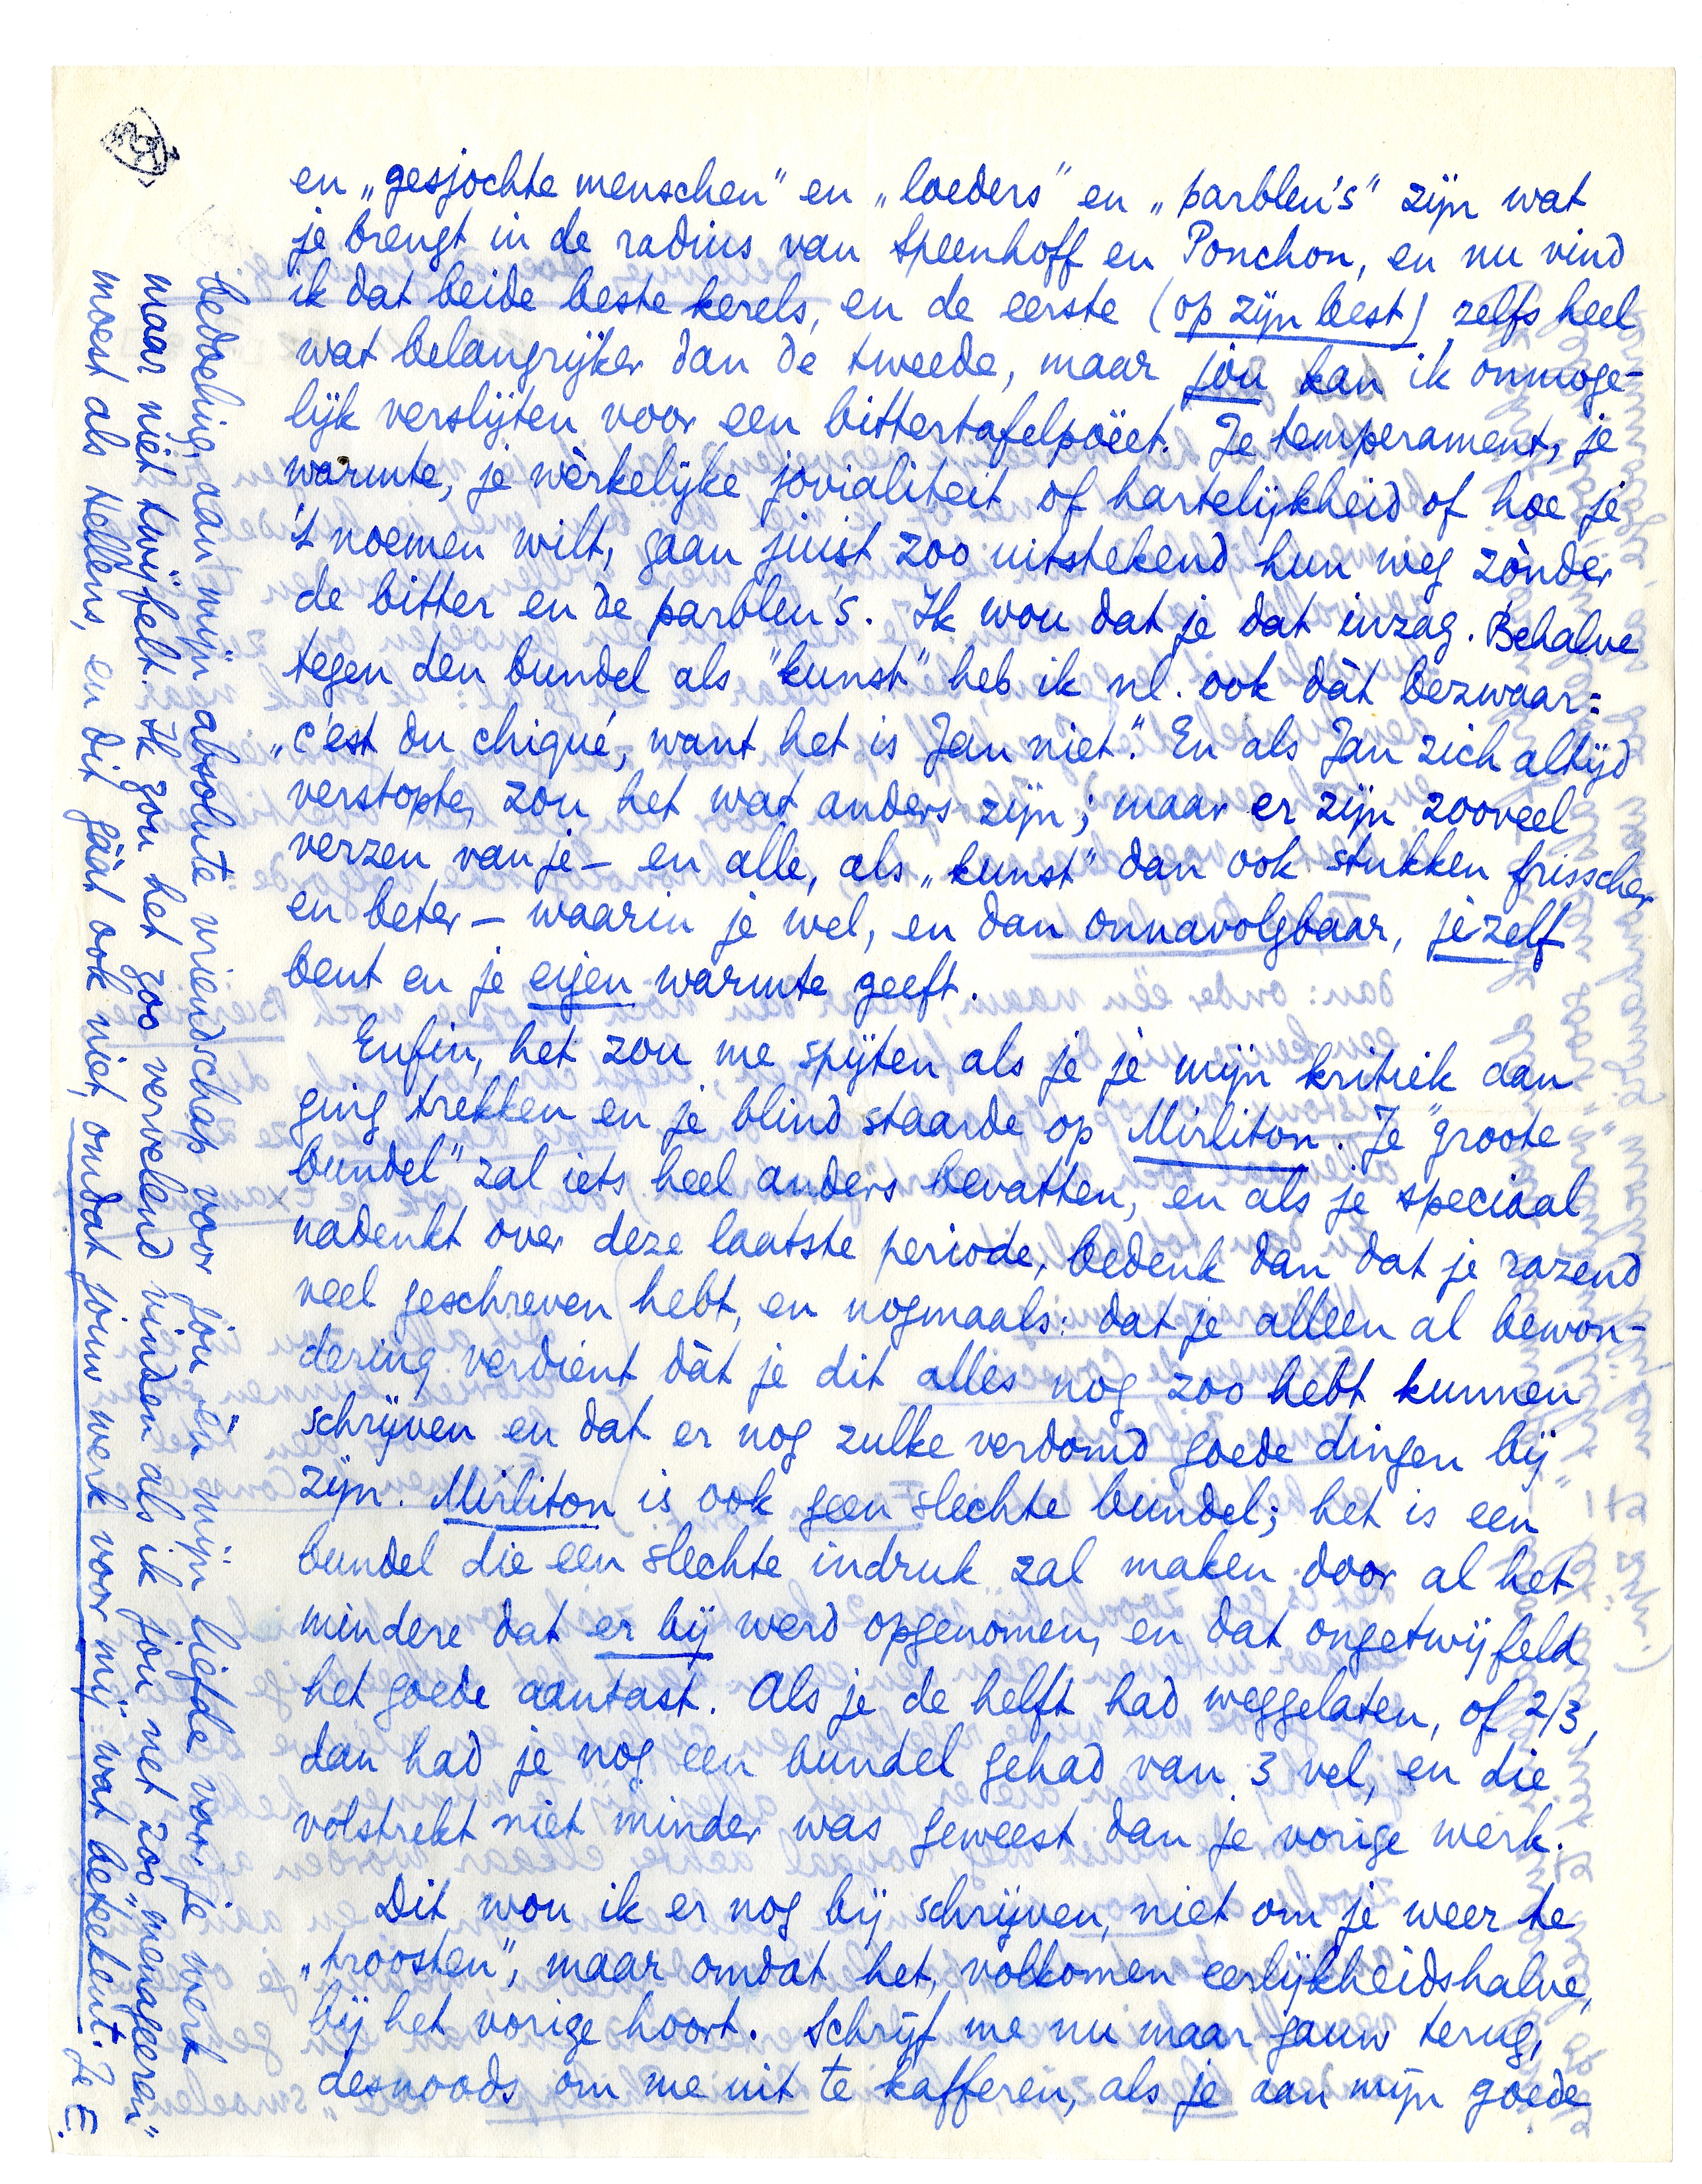 en „gesjochte menschen" en „loeders" en „parbleu's" zijn wat
je brengt in de radius van Speenhoff en Ponchon, en nu vind
ik dat beide beste kerels, en de eerste (op zijn best) zelfs heel
wat belangrijker dan de tweede, maar jòu kan ik onmoge-
lijk verslijten voor een bittertafelpoëet. Je temperament, je
warmte, je wèrkelijke jovialiteit of hartelijkheid of hoe je
't noemen wilt, gaan juist zoo uitstekend hun weg zònder
de bitter en de parbleu's. Ik wou dat je dat inzag. Behalve
tegen den bundel als "kunst" heb ik nl. ook dàt bezwaar:
„c'est du chiqué, want het is Jan niet." En als Jan zich altijd
verstopte, zou het wat anders zijn; maar er zijn zooveel
verzen van je – en alle, als „kunst" dan ook stukken frisscher
en beter – waarin je wel, en dan onnavolgbaar, jezelf
bent en je eigen warmte geeft.
Enfin, het zou me spijten als je je mijn kritiek aan
ging trekken en je blind staarde op Mirliton. Je "groote
bundel" zal iets heel anders bevatten, en als je speciaal
nadenkt over deze laatste periode, bedenk dan dat je razend
veel geschreven hebt, en nogmaals: dat je alleen al bewon-
dering verdient dàt je dit alles nog zoo hebt kunnen
schrijven en dat er nog zulke verdomd goede dingen bij
zijn. Mirliton is ook geen slechte bundel; het is een
bundel die een slechte indruk zal maken door al het
mindere dat er bij werd opgenomen, en dat ongetwijfeld
het goede aantast. Als je de helft had weggelaten, of 2/3,
dan had je nog een bundel gehad van 3 vel, en die
volstrekt niet minder was geweest dan je vorige werk.
Dit wou ik er nog bij schrijven, niet om je weer te
„troosten", maar omdat het, volkomen eerlijkheidshalve,
bij het vorige hoort. Schrijf me nu maar gauw terug,
desnoods om me uit te kafferen, als je aan mijn goede
bedoeling, aan mijn absolute vriendschap voor jou èn mijn liefde voor je werk
maar niet twijfelt. Ik zou het zoo vervelend vinden als ik jou net zoo „menageeren"
moest als Hellens, en dit gáát ook niet, omdat jouw werk voor mij wat beteekent. Je E.